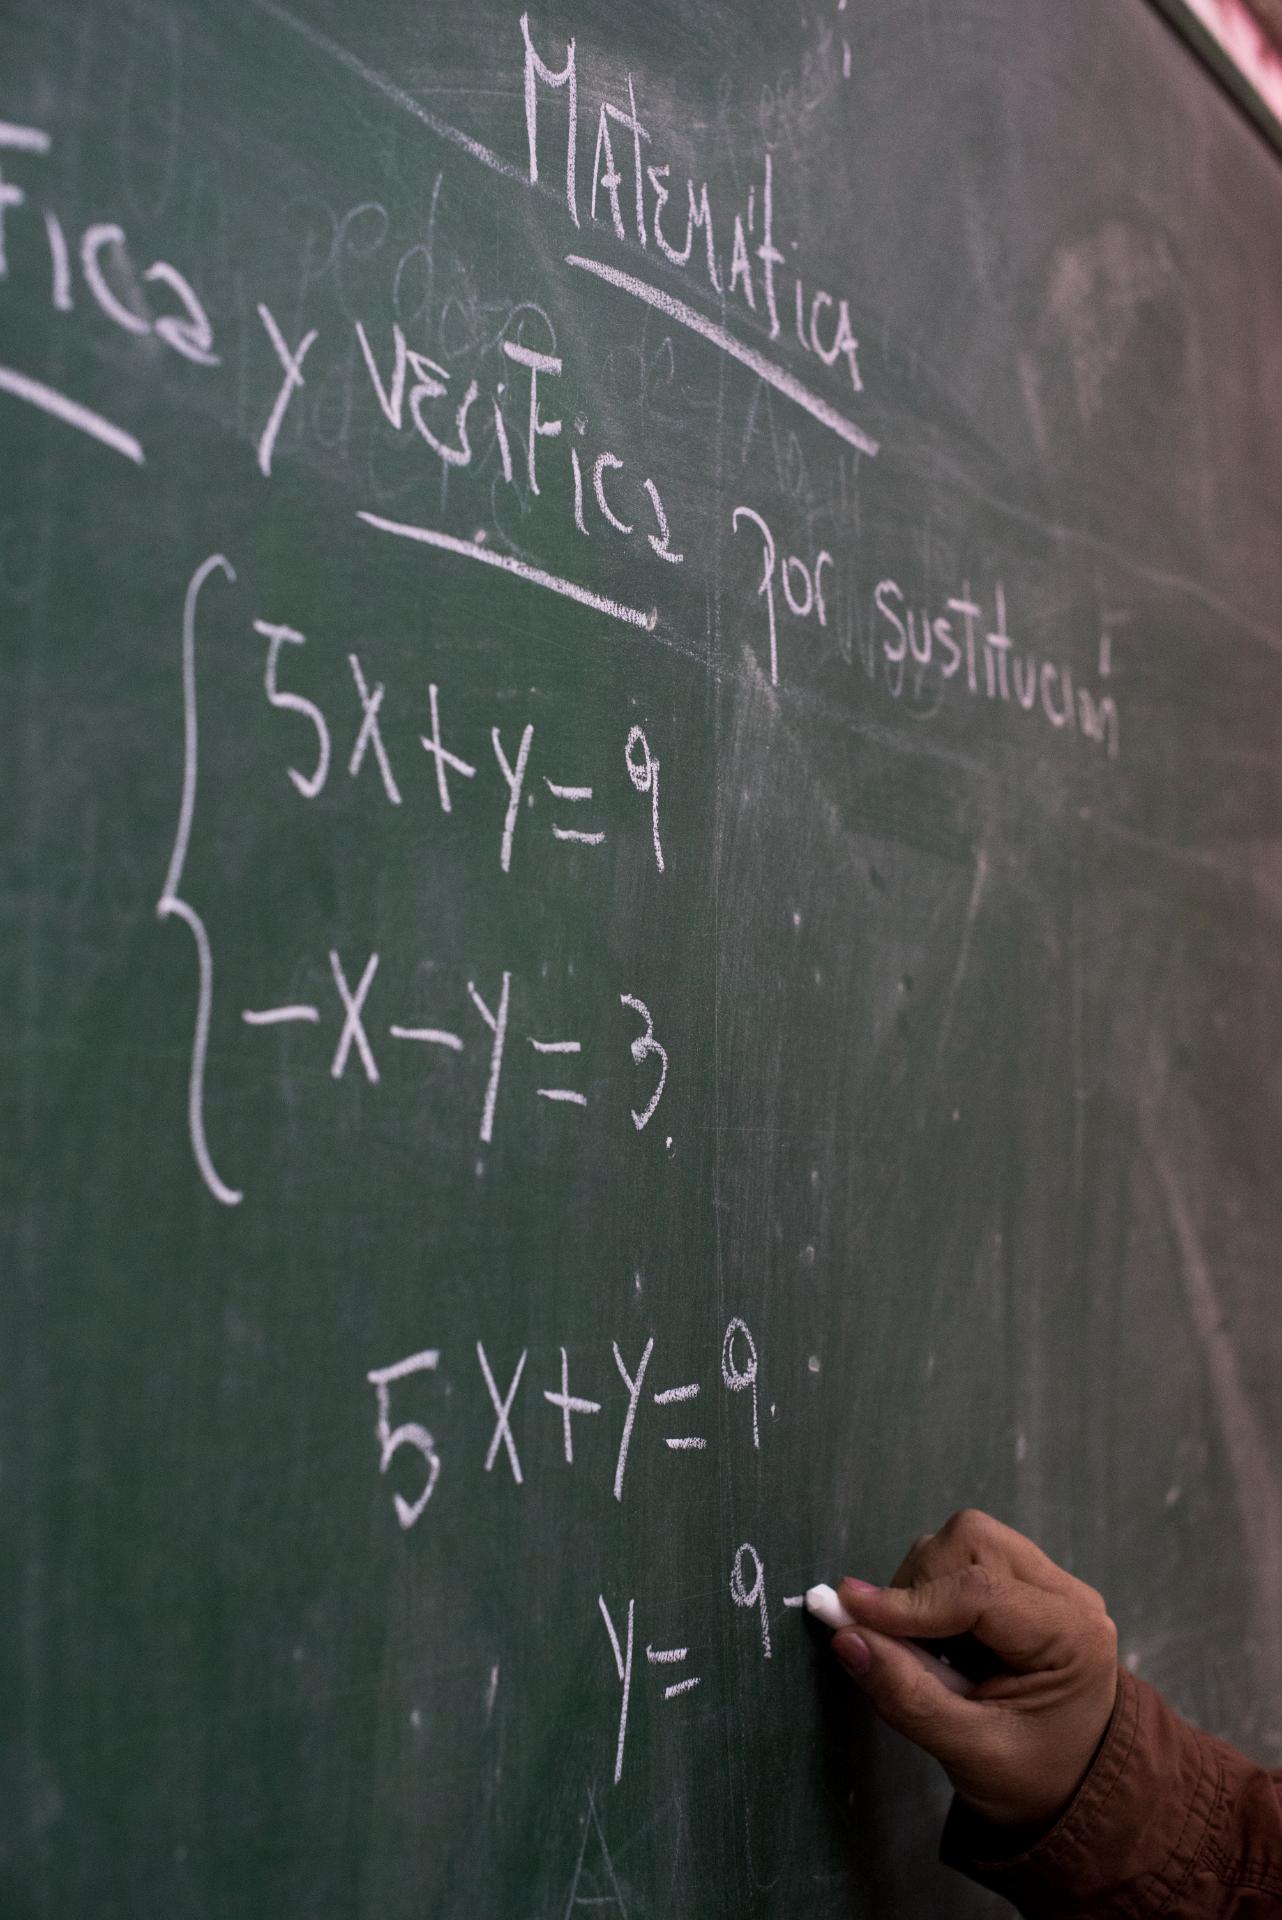 Matemática
Fica y verifica por sustitución
5x+y=9
-x-y=3
5x+y=9
y=9-